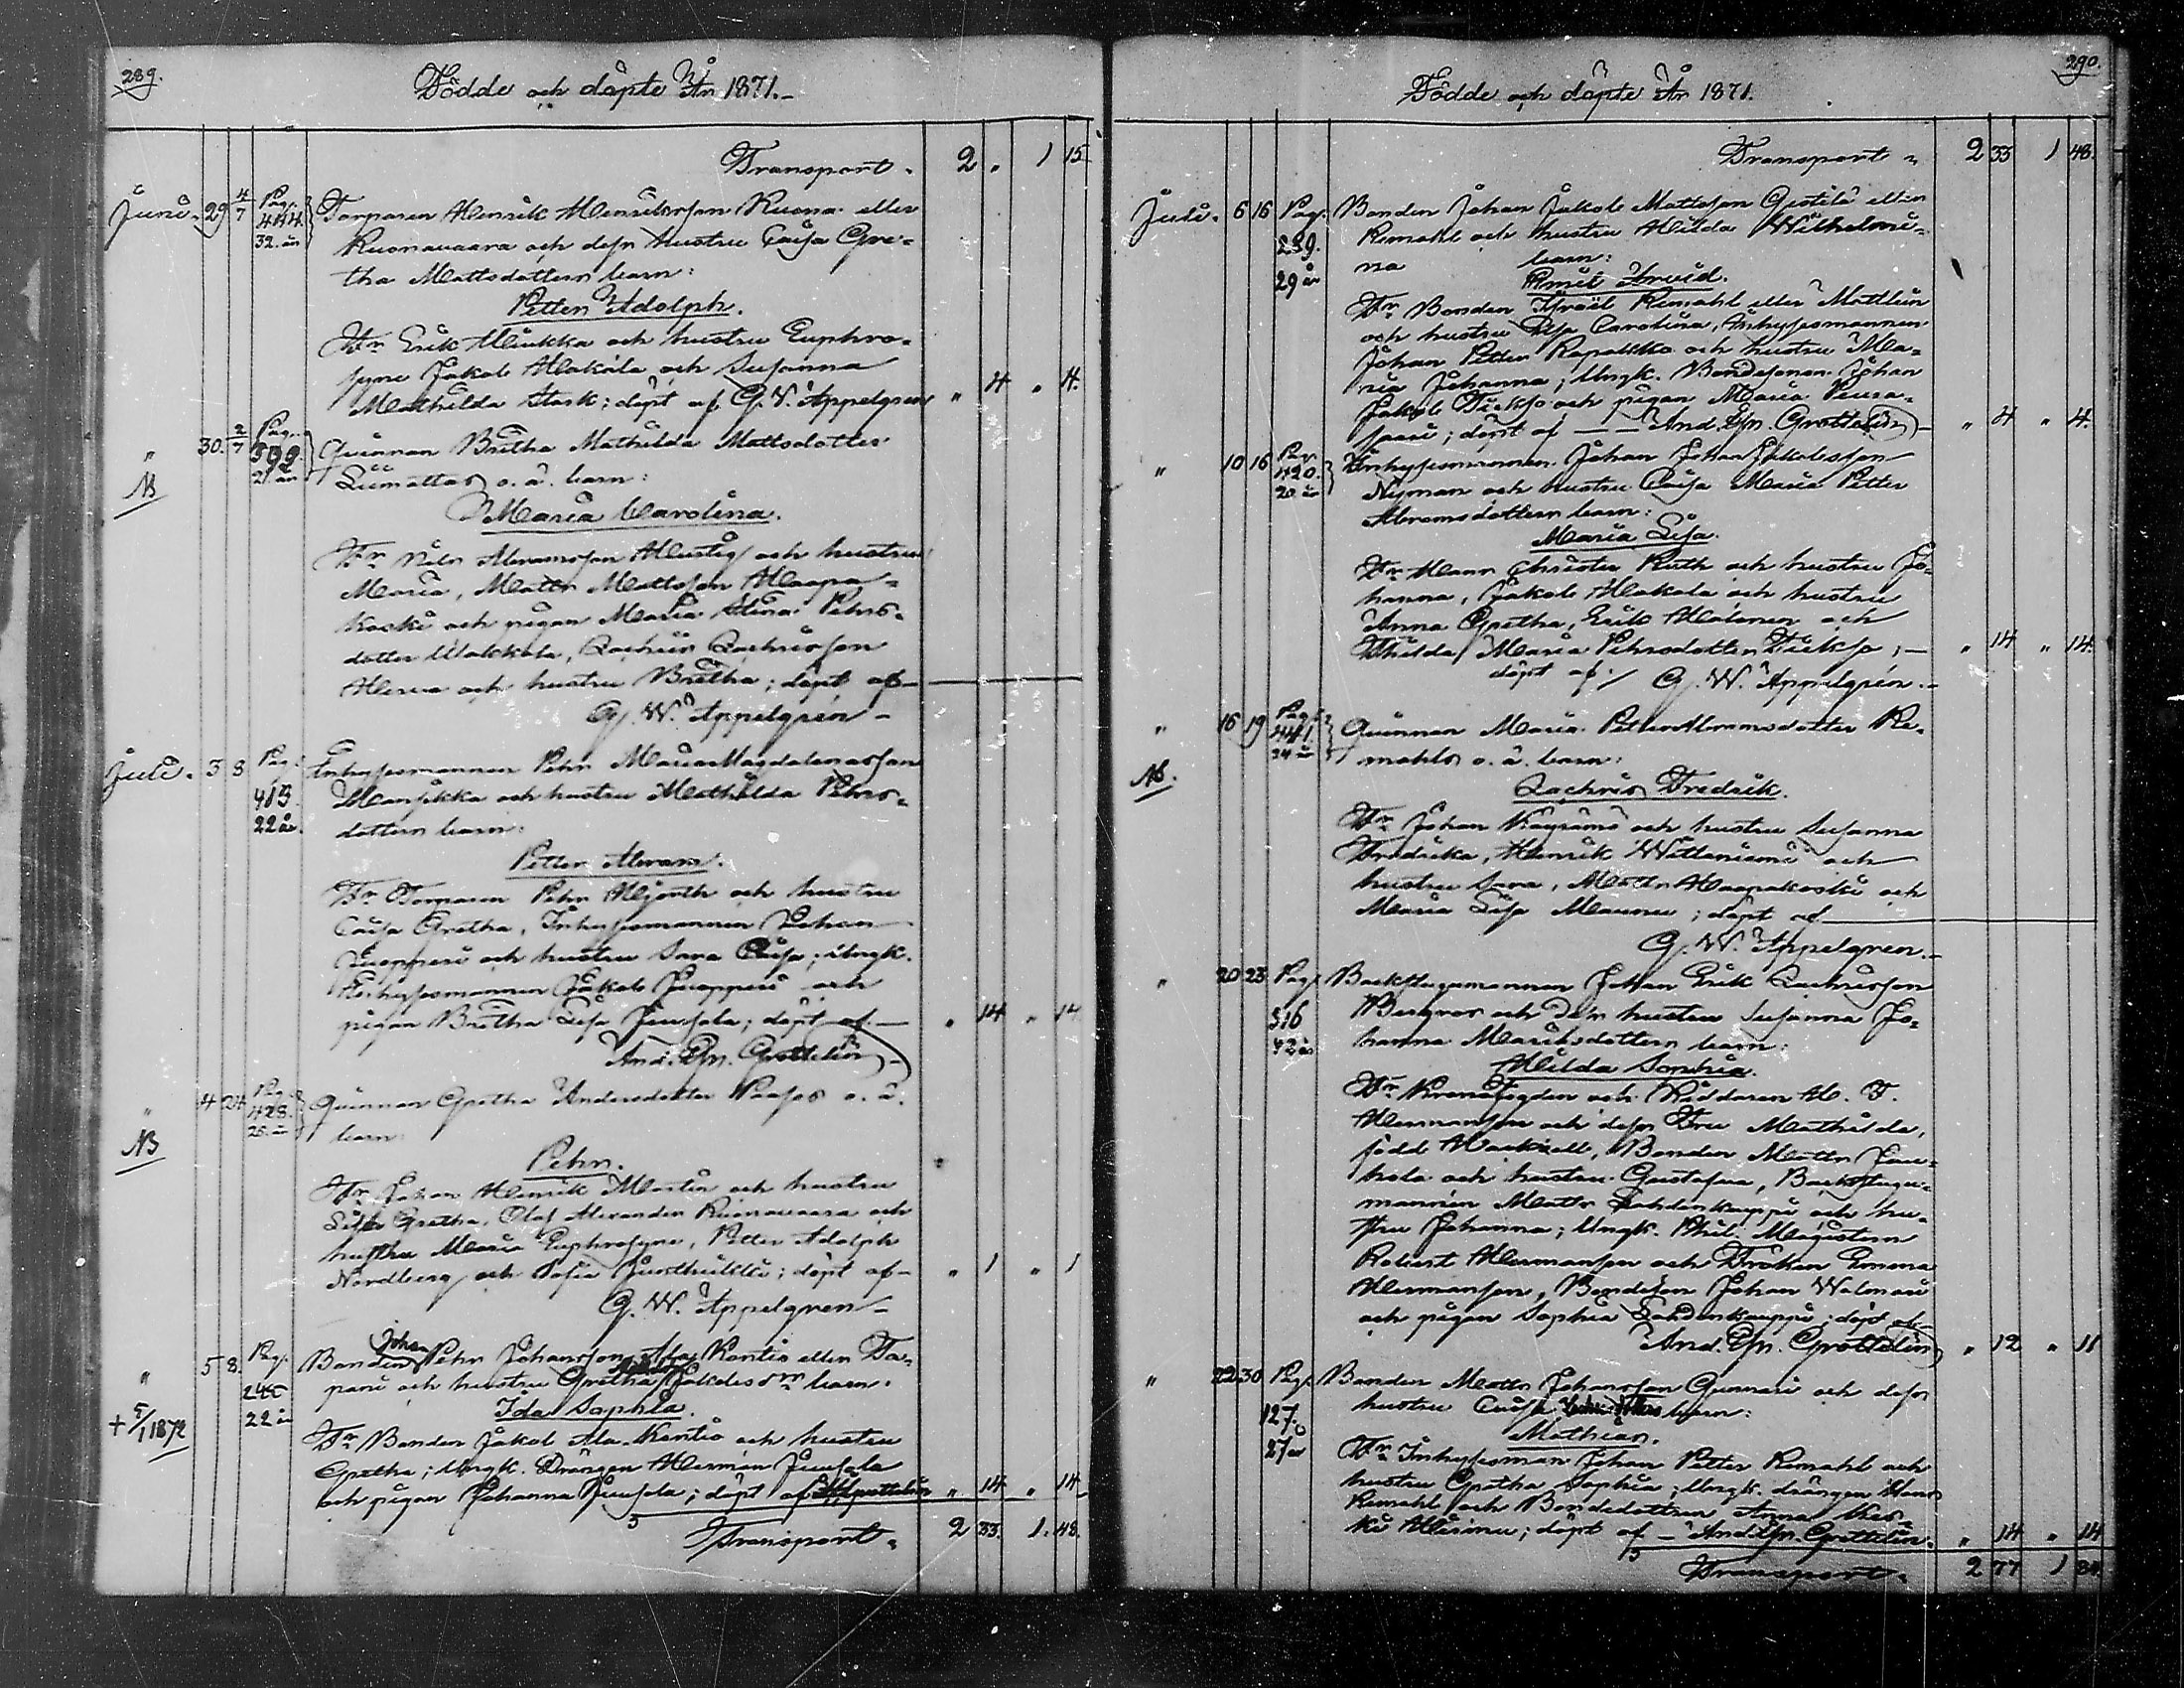 289.
Födde och döpte År 1871.
Transport. 2 " 1 15
Juni. 29 4/7 Pag. 444. 32. år Torparen Henrik Henriksson Kuona eller
Kuonavaara och dess hustru Caisa Gre-
tha Mattsdotters barn:
Petter Adolph.
Fr Erik Hiukka och hustru Euphro-
syne Jakob Hakala och Susanna
Mathilda Stark; döpt af G. W. Appelgren " 4 " 4.
" 30. 2/7 Pag. 392. 21 år Qvinnan Britha Mathilda Mattsdotter
NB
Liimattas o. ä. barn:
Maria Carolina.
Fr Nils Abramsson Hertig och hustru
Maria, Matts Mattsson Haapa-
koski och pigan Maria Stina Pehrs-
dotter Ulakkola, Zachris Zachrisson
Herva och hustru Britha; döpt af
G. W. Appelgren
Juli. 3 8 Pag. 415. 22 år. Inhysesmannen Pehr MariaMagdalenasson
Mansikka och hustru Mathilda Pehrs-
dotters barn:
Petter Abram.
Fr Torparen Pehr Hjorth och hustru
Caisa Gretha, Inhysesmannen Johan
Juopperi och hustru Sara Caisa; Ungk.
Inhysesmannen Jakob Juopperi och
pigan Britha Lisa Junsola; döpt af " 14 " 14
And. Gr. Grottelin
" 4 24 Pag. 428. 25. år Qvinnan Gretha Andersdotter Paasos o. ä.
NB
barn:
Pehr.
Fr Johan Henrik Martin och hustru
Lisa Gretha, Olof Alexander Kuonavaara och
hustru Maria Euphrosyne, Petter Adolph
Nordberg och Sofia Juntikka; döpt af " 1 " 1
G. W. Appelgren
" 5 8. Pag. 240 22 år Bonden Johan Pehr Johansson Ala Kontio eller Ta-
pani och hustru Gretha Jakobsdrs barn:
+ 5/1 1872
Ida Sophia.
Fr Bonden Jakob Ala-Kontio och hustru
Gretha; Ungk. Drängen Herman Junsola
och pigan Johanna Junsola; döpt af Grottelin " 14 " 14
Transport. 2 33. 1. 48.
290.
Födde och döpte År 1871.
Transport 2 33 1 48.
Juli. 6 16 Pag. 239. 29 år Bonden Johan Jakob Mattsson Gestilä eller
Remahl och hustru Hilda Wilhelmi-
na barn:
Emil Arvid.
Fr Bonden Israel Remahl eller Mattlin
och hustru Lisa Carolina, Inhysesmannen
Johan Petter Rapakko och hustru Ma-
ria Johanna; Ungk. Bondesonen Johan
Jakob Tiekso och pigan Maria Peura-
saari; döpt af And. Gr. Grottelin " 4 " 4.
" 10 16 Pag. 420. 20 år Inhysesmannen Johan Johan Jakobsson
Nyman och hustru Caisa Maria Petter
Abramsdotters barn:
Maria Lisa.
Fr Hans Christer Ruth och hustru Jo-
hanna, Jakob Hakala och hustru
Anna Gretha, Erik Heikonen och
Thilda Maria Pehrsdotter Tiekso; " 14 " 14.
döpt af G. W. Appelgren.
" 16 19 Pag. 441. 24 år Qvinnan Maria Petter Abramsdotter Re-
NB.
mahls o. ä. barn:
Zachris Fredrik.
Fr Johan Käyrämö och hustru Susanna
Fredrika, Henrik Wittaniemi och
hustru Sara, Matts Haapakoski och
Maria Lisa Maunu; döpt af
G. W. Appelgren.
" 20 23 Pag. 316 42 år Backstugumannen Johan Erik Zachrisson
Bergros och dess hustru Susanna Jo-
hanna Mariksdotters barn:
Hilda Sophia.
Fr Kronofogden och Riddaren H. F.
Hermanson och dess Fru Mathilda,
född Hackzell, Bonden Matts Jau-
hola och hustru Gustafva, Backstugu-
mannen Matts Lahdenkauppi och hu-
stru Johanna; Ungk. Phil. Magistern
Robert Hermanson och Fröken Emma
Hermanson, Bondeson Johan Walmari
och pigan Sophia Lahdenkauppi; döpt af
And. Gr. Grottelin " 12 " 11
" 22 30 Pag. 127. 27 år Bonden Matts Johansson Gunnari och dess
hustru Caisa barn:
Mathias.
Fr Inhysesman Johan Petter Remahl och
hustru Gretha Sophia; Ungk. drängen Hans
Remahl och Bondedottern Anna Kes-
ki Hirinu; döpt af And. Gr. Grottelin. " 14 " 14
Transport. 2 77 1 81